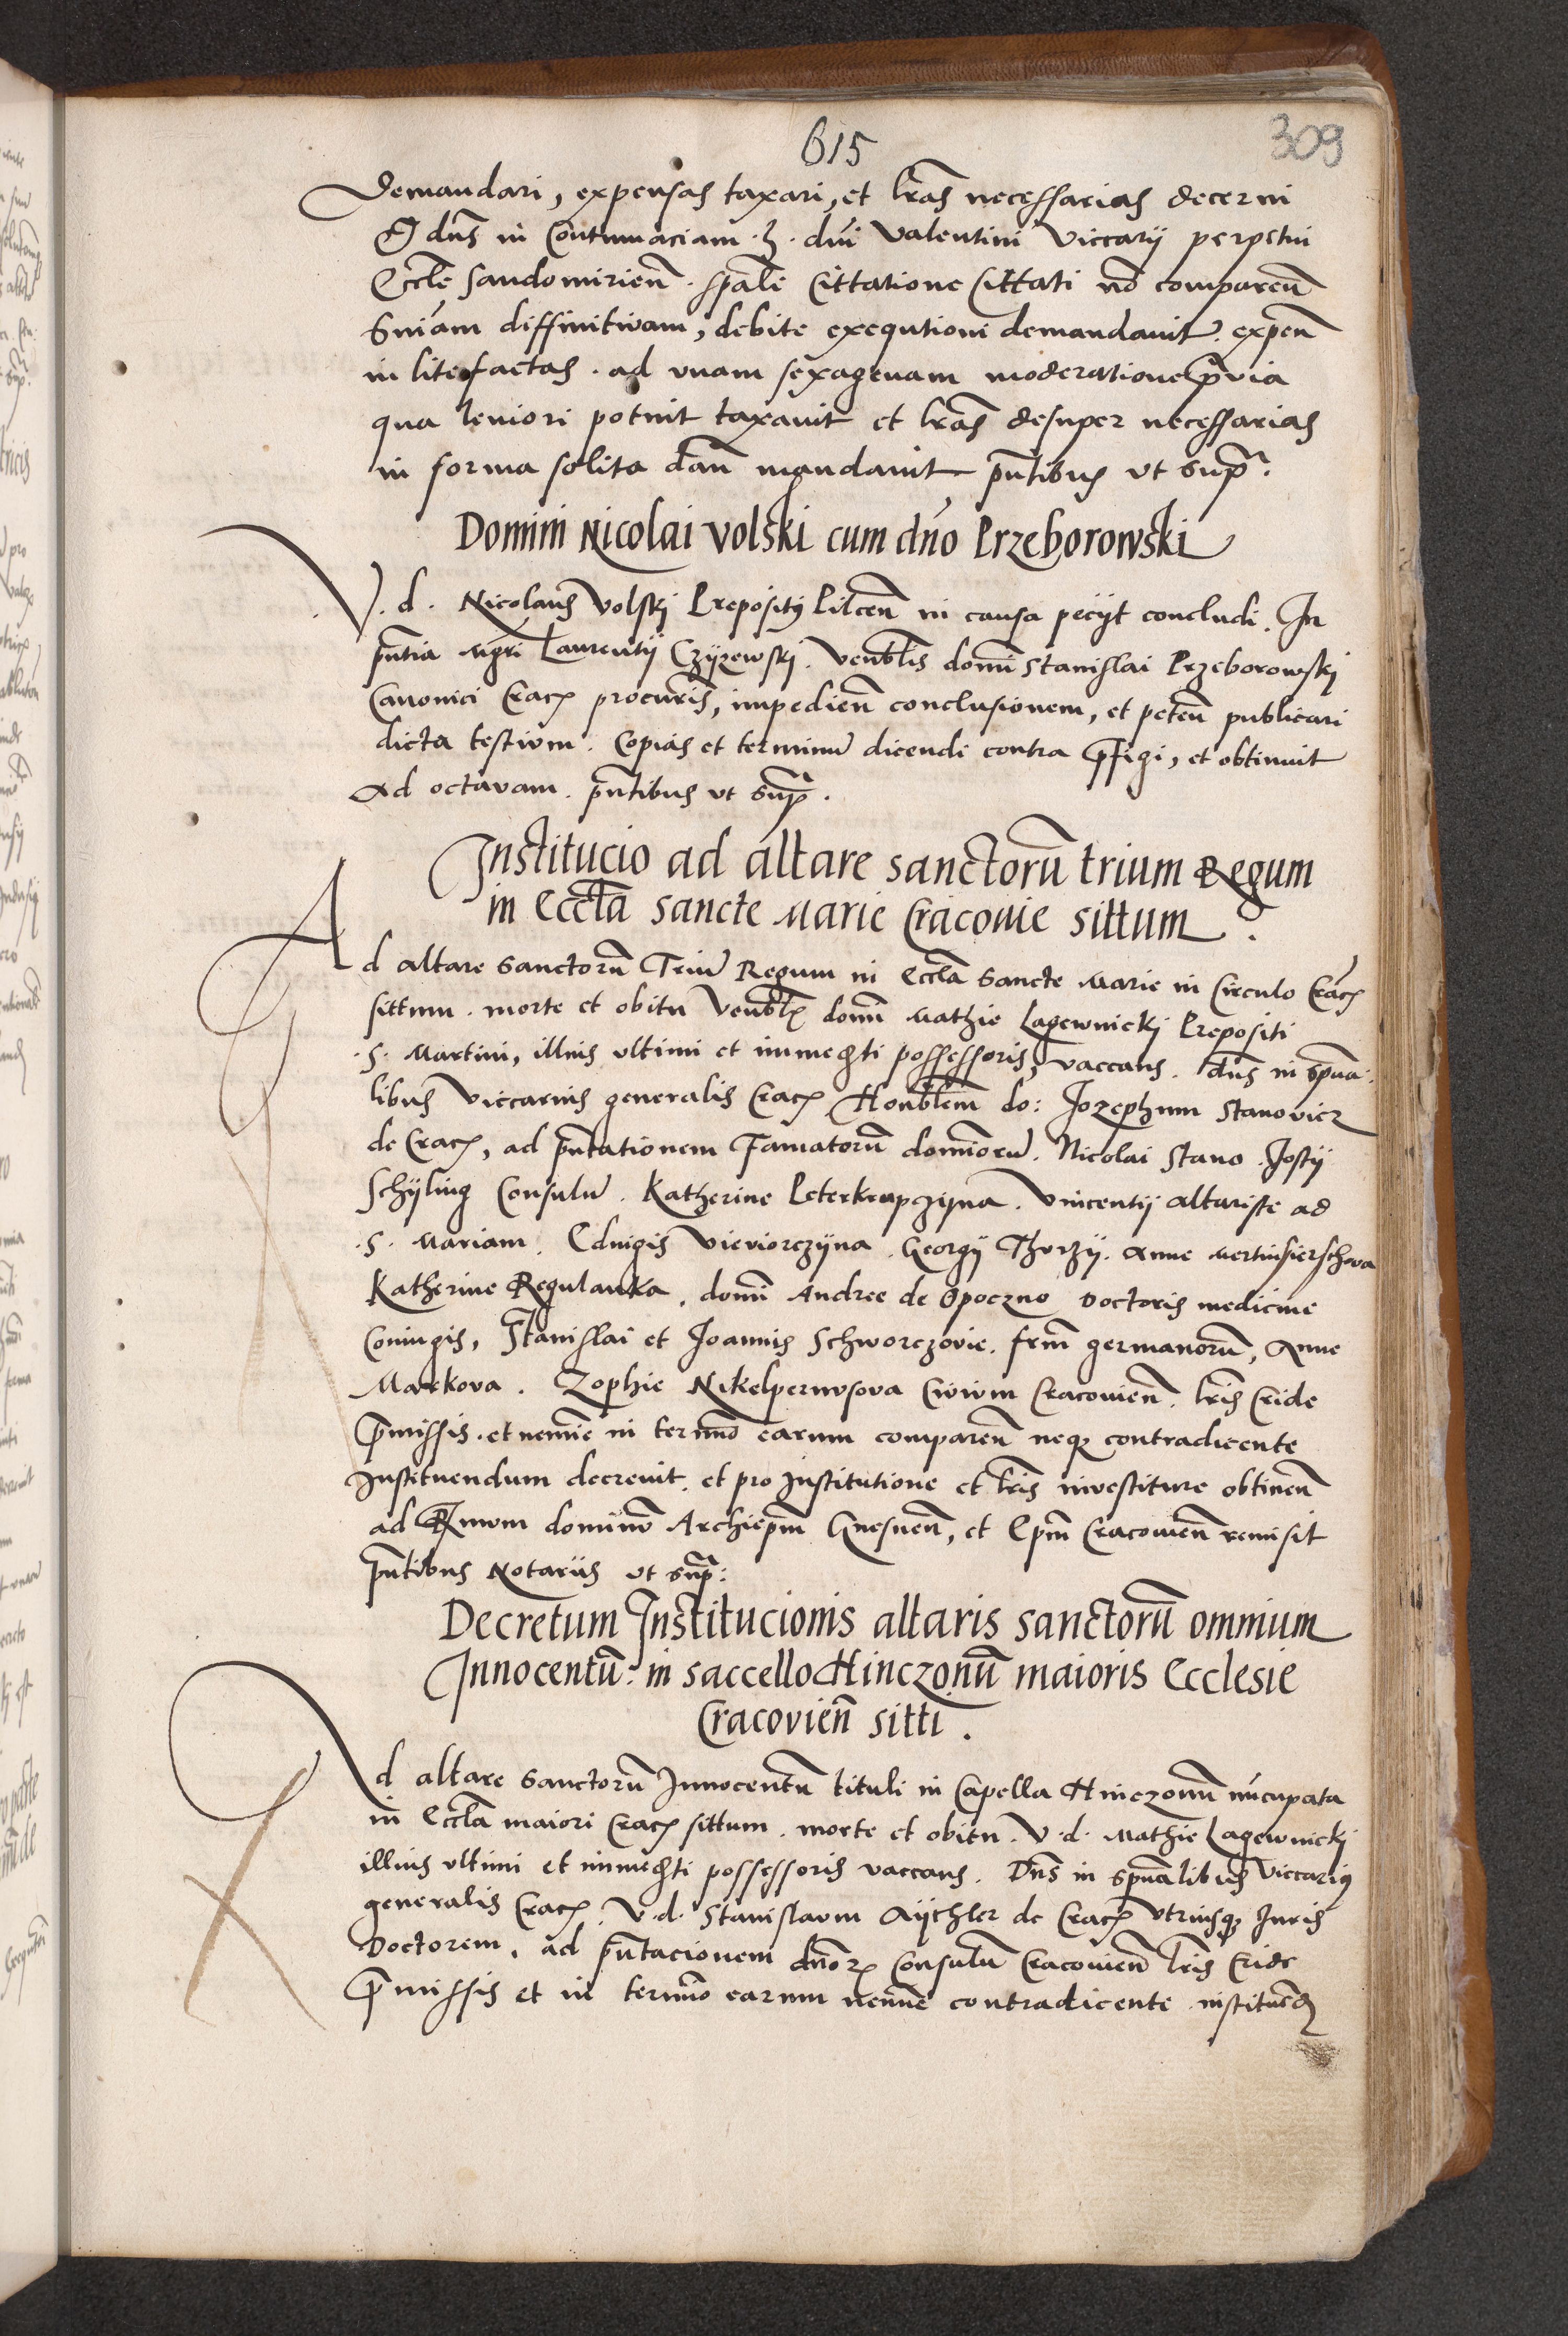 615
309
demandari, expensas taxari, et lr̃as necessarias decerni
Et dn̄s in contumaciam .h. dn̄i Valentini Viccarij perpetui
Eccl̃e Sandomirien̄ . sp̃ali Cittatione Cittati nō comparen̄
Sniãm diffinitivam, debite exequtioni demandavit. expen̄
in lite factas . ad unam sexagenam moderatione p̄via
qua leniori potuit taxavit et lr̃as desuper necessarias
in forma solita dan̄ mandavit p̄ntibus ut sup̃.
Domini Nicolai Volski cum dn̄o Przeborowski
V. d. Nicolaus Volskj Prepositus Pilcen̄ in causa pecijt concludi. In
p̄ntia mgr̃i Laurentij Czyzewskj. Venlis domī Stanislai Przeborowskj
Canonici Crac̄ procuris̄, impedien̄ conclusionem, et peten̄ publicari
dicta testium. Copias et terminū dicendi contra p̄figi, et obtinuit
ad octavam. p̄ntibus ut sup̃.
Institucio ad altare sanctorū trium Regum
in Eccl̄a sancte Marie Cracovie sittum.
Ad altare Sanctorū Triū Regum in Eccl̃a Sancte Marie in Circulo Crac̄
sittum . morte et obitu Venlis domī Mathie Lagewnickj Prepositi
.S. Martini, illius ultimi et immedti possessoris, vaccans. dn̄s in sp̄ua
libus Viccarius generalis Crac̄ Honblem do: Jozephum Stanovicz
de Crac̄, ad p̄ntationem Famatorū dominorū. Nicolai Stano. Josty
Schyling Consulū. Katherine Peterkrupczyna. Vincentij altariste ad
.S. Mariam. Edvigis Vieviorczyna. Georgij Thurzy. Anne
Katherine Regulanka, domī Andree de Opoczno Doctoris medicine
Coniugis, Stanislai et Joannis Schworczovie. frm̄ germanorū, Anne
Markova. Zophie Nikelpernusova Civium Cracovien̄. lr̃is Cride
p̄missis. et nemīe in termīo earum comparen̄ neq; contradicente
Instituendum decrevit. et pro Institutione et lr̃is investiture obtinen̄
ad Rmum dominū Archiep̄m Gnesnen̄, et Ep̄m Cracovien̄ remisit
p̄ntibus Notariis ut sup̃:
Decretum Institucionis altaris sanctorū omnium
Innocentū. in saccello Hinczonū maioris Ecclesie
Cracovien̄ sitti.
Ad altare Sanctorū Innocentū tituli in Capella Hinczonū nūcupata
in Eccl̃a maiori Crac̄ sittum. morte et obitu. V. d. Mathie Lagewnickj
illius ultimi et immedti possessoris vaccans. Dn̄s in sp̄ualibus Viccarius
generalis Crac̄. V. d. Stanislaum Aychler de Crac̄ Utriusq; Juris
Doctorem, ad p̄ntacionem dn̄or̄ Consulū Cracovien̄ lr̃is Cride
p̄missis et in termīo earum nemīe contradicente . instituend̄